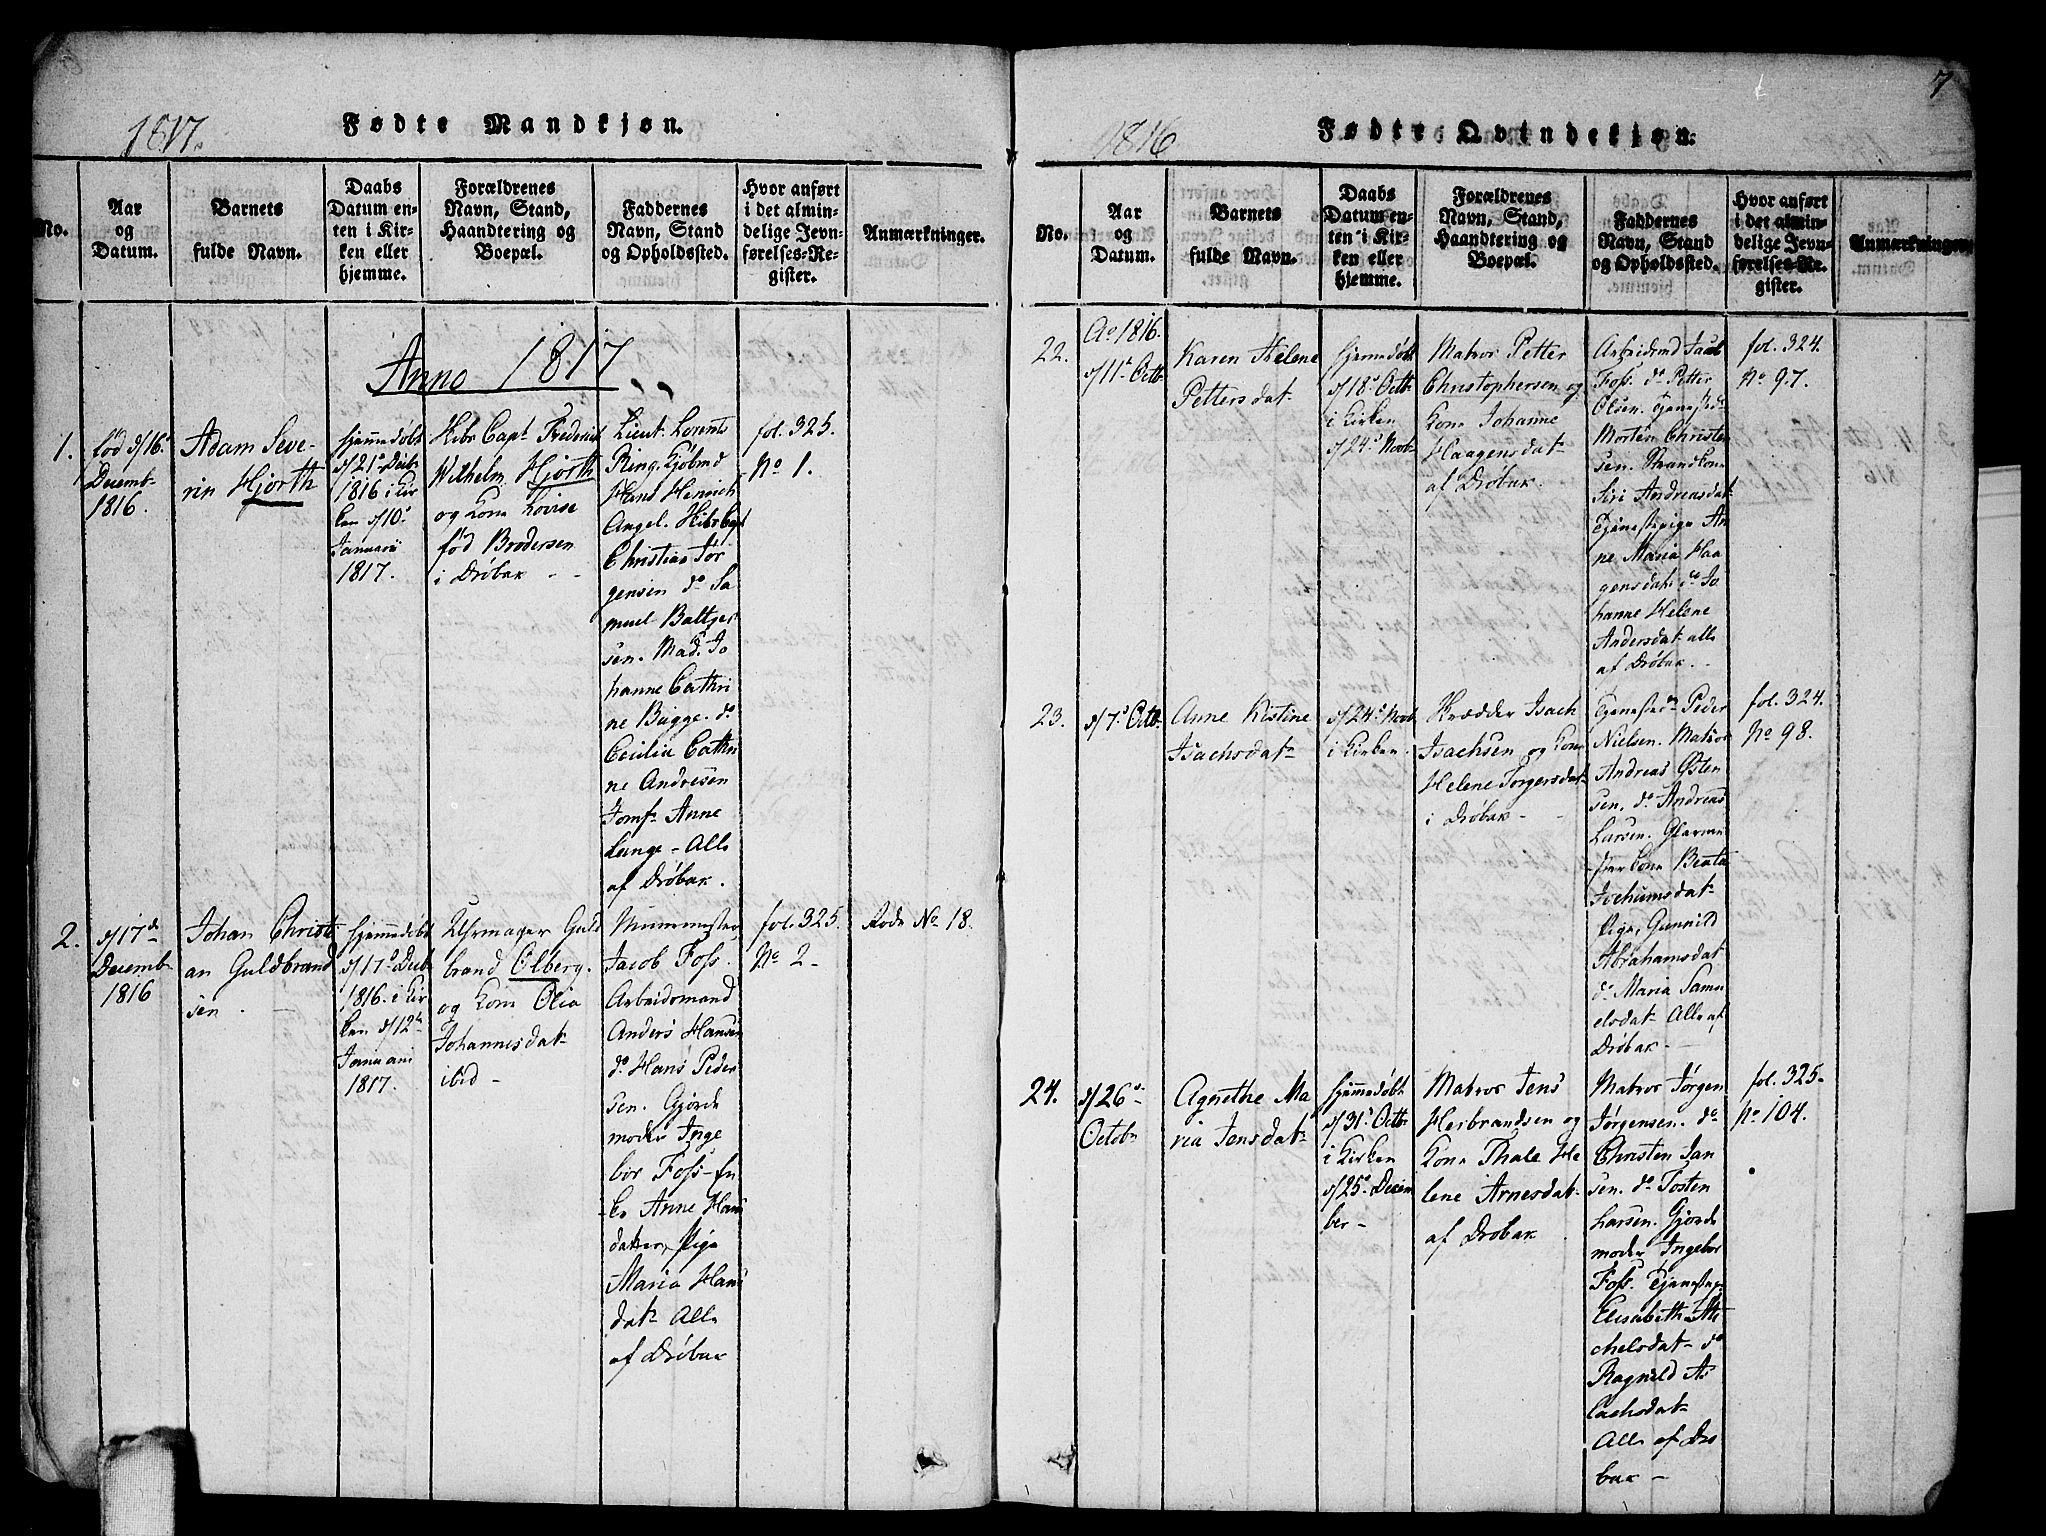 1817.
Fødte Mandkjøn.
No.
Aar
og
Datum.
Barnets
fulde Navn.
Daabs
Datum en-
ten i Kir-
ken eller
hjemme.
Forældrenes
Navn, Stand,
Haandtering og
Boepæl.
Faddernes
Navn, Stand
og Opholdssted.
Hvor anført
i det almin-
delige Jevn-
førelses-Re-
gister.
Anmærkninger.
Anno 1817
1.
fød d/16.
Decemb.
1816.
Adam Seve-
rin Hjorth
hjemmedøbt
d/21de Decbr
1816 i Kir
ken d/10.
Januarii
1817.
Skibs Capt. Frederich
Wilhelm Hjorth
og Kone Lovise
fød Brodersen
i Drøbak - -
Lieut. Lorents
Ring. Kjøbmd
Hans Henrich
Angel. Skibs Capt
Christian Jør
gensen do Sa
muel Baltzer
sen. Mad. Jo
hanne Cathri
ne Bugge. do
Cecilia Cathri
ne Andresen
Jomf. Anne
Lange - Alle
af Drøbak.
fol. 325.
No 1.
2.
d/17de
Decemb.
1816
Johan Christi
an Guldbrand
sen.
hjemmedøbt
d/17de Decb
1816. i Kir
ken d/12te
Januarii
1817.
Uhrmager Guld
brand Olberg.
og Kone Olia
Johannesdatr
ibid -
Muurmester
Jacob Foss.
Arbeidsmand
Anders Hansen
do Hans Peder
sen. Gjorde
moder Inge
bor Foss - En
ke Anne Hans
datter, Pige
Maria Hans
datr Alle
af Drøbak
fol. 325.
No 2 -
Rode No 18.
7
1816
Fødte Qvindekjøn.
No.
Aar
og
Datum.
Barnets
fulde Navn.
Daabs
Datum en-
ten i Kir-
ken eller
hjemme.
Forældrenes
Navn, Stand,
Haandtering og
Boepæl.
Faddernes
Navn, Stand
og Opholdssted.
Hvor anført
i det almin-
delige Jevn-
førelses-Re-
gister.
Anmærkninger.
22.
Ao 1816.
d/11te Octb.
Karen Helene
Pettersdat
hjemmedøbt
d/18de Octb
i Kirken
d/24de Novb.
Matros Petter
Christophersen og
Kone Johanne
Haagensdatr
af Drøbak.
Arbeidsmd Jacob
Foss. do Petter
Olsen. Tjenestedr
Morten Christen
sen. Strandkone
Siri Andreasdatr
Tjenestepige An
ne Maria Haa
gensdatr do Jo
hanne Helene
Andersdatr alle
af Drøbak. -
fol. 324.
No 97.
23.
d/7de Octb.
Anne Kistine
Isachsdatr
d/24de Novb
i Kirken.
Skrædder Isach
Isachsen og Kone
Helene Torgersdatr
i Drøbak -
Tjenestedr Peder
Nielsen. Matros
Andreas Osten
sen. do Andreas
Larsen. Glarme
ster Kone Beata
Jochumsdatr
Pige, Gunnild
Abrahamsdat
do Maria Samu
elsdatr Alle af
Drøbak -
fol. 324.
No 98.
24.
d/26de
Octobr
Agnethe Ma
ria Jensdatr
hjemmedøbt
d/31te Octb
i Kirken
d/25de Decem
ber -
Matros Jens
Herbrandsen og
Kone Thale He
lene Arnesdatr
af Drøbak
Matros Jørgen
Jørgensen. do
Christen Jan
sen. do Tosten
Larsen. Gjorde
moder Ingebor
Foss. Tjenestepige
Elisabeth Mi
chelsdatr do
Ragnild As
lachsdatr
Alle af Drø
bak -
fol. 325.
No 104.